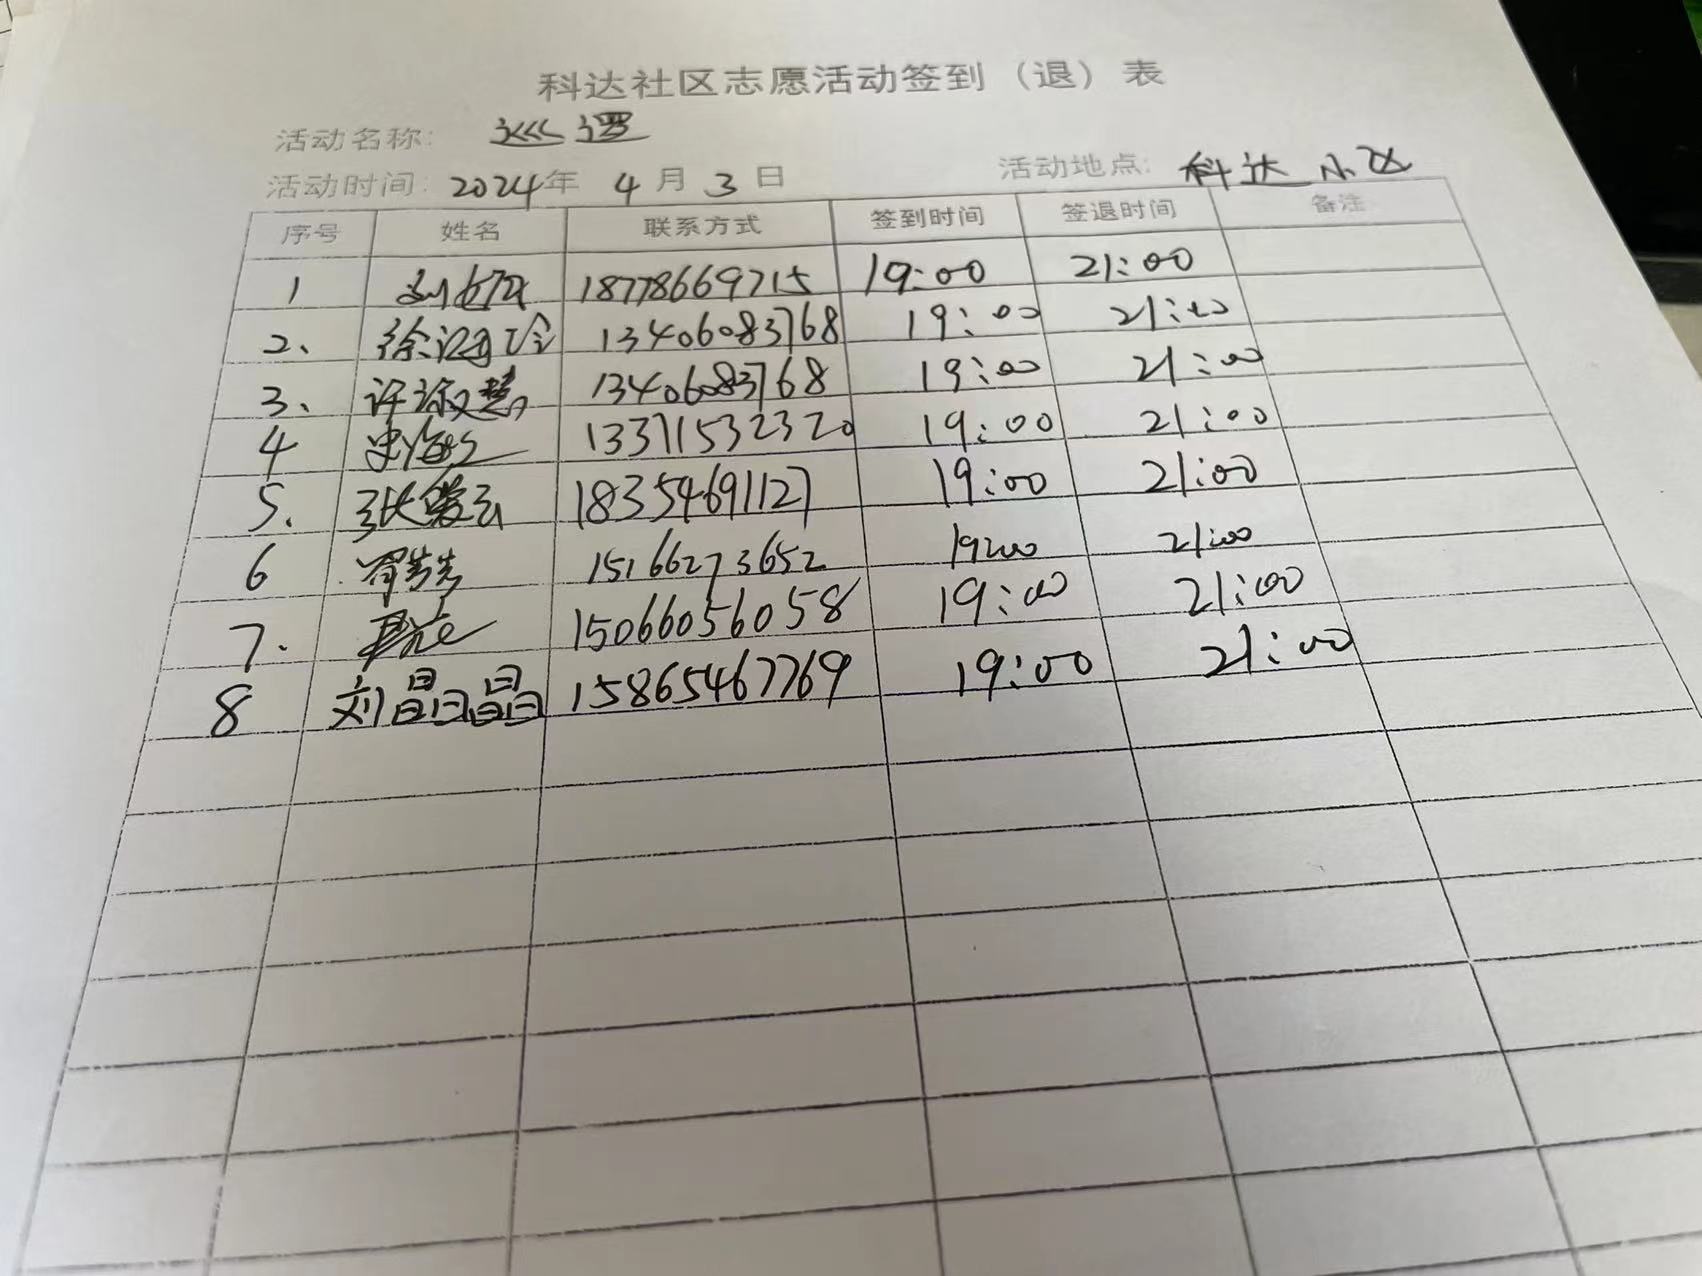 科达社区志愿活动签到（退）表
活动名称: 巡逻
活动时间: 2024年 4月 3日 活动地点: 科达小区
序号 姓名 联系方式 签到时间 签退时间 备注
1 18778669715 19:00 21:00
2、 13406083768 19:00 21:00
3、 许淑慧 13406083768 19:00 21:00
4 13371532320 19:00 21:00
5. 18354691127 19:00 21:00
6 15166273652 19:00 21:00
7. 15066056058 19:00 21:00
8 刘晶晶 15865467769 19:00 21:00